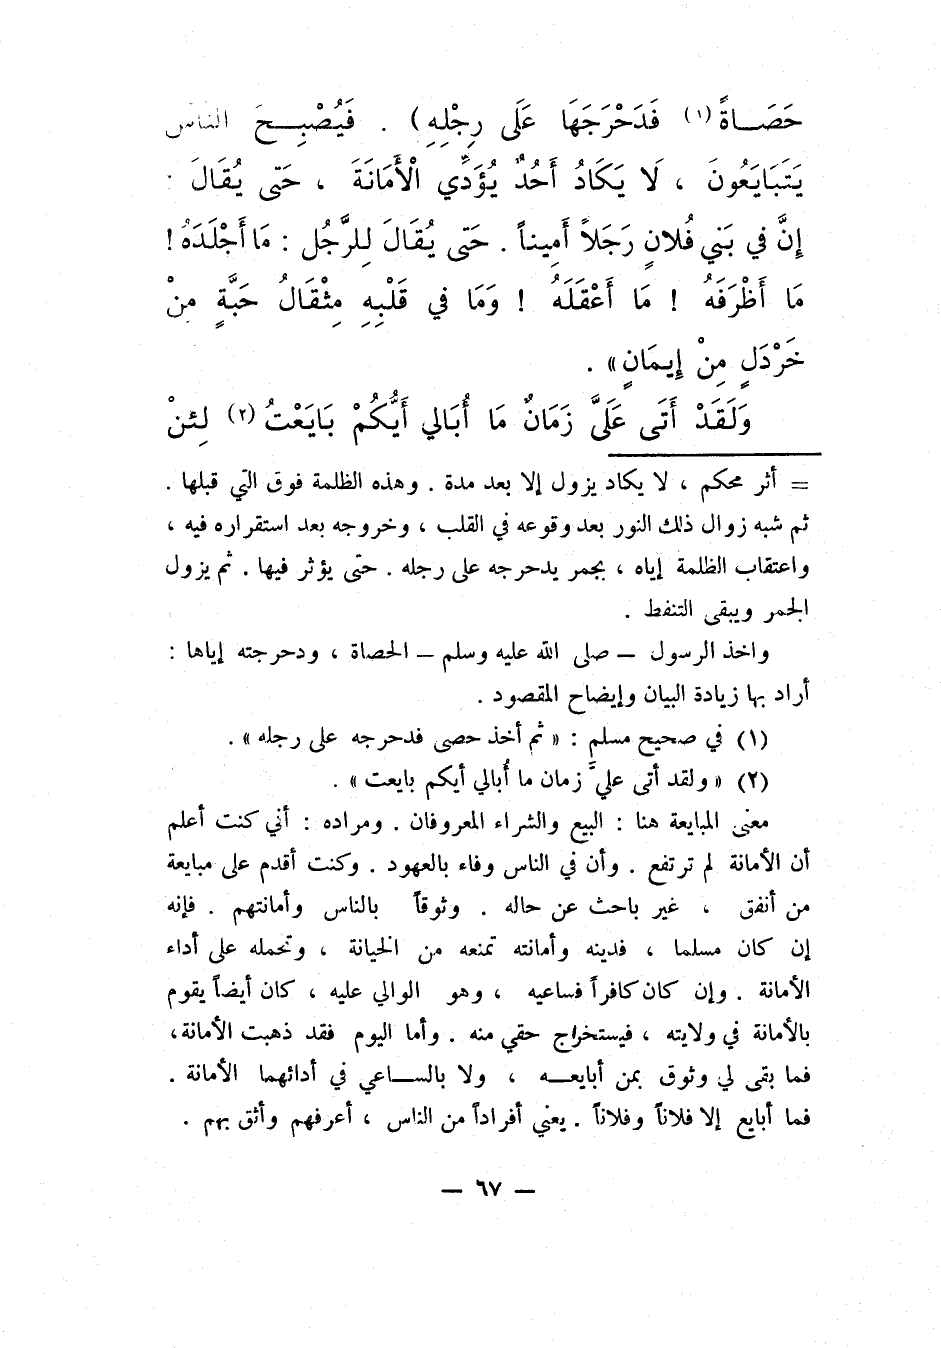 حَصَاةً (١) فَدَحْرَجَهَا عَلَى رِجْلِهِ) . فَيُصْبِحَ الناس
يَتَبَايَعُونَ ، لَا يَكَادُ أَحُدٌ يُؤَدِّي الْأَمَانَةَ ، حَتى يُقَالَ :
إِنَّ في بَني فُلانٍ رَجَلاً أَمِيناً . حَتى يُقَالَ لِلرَّجُلِ : مَا أَجْلَدَهُ !
مَا أَظْرَفَهُ ! مَا أَعْقَلَهُ ! وَمَا في قَلْبِهِ مِثْقَالُ حَبَّةٍ مِنْ
خَرْدَلٍ مِنْ إِيمَانٍ» .
وَلَقَدْ أَتَى عَلَيَّ زَمَانٌ مَا أُبَالي أَيُّكُمْ بَايَعْتُ (٢) لِئنْ
= أثر محكم ، لا يكاد يزول إلا بعد مدة . وهذه الظلمة فوق التي قبلها .
ثم شبه زوال ذلك النور بعد وقوعه في القلب ، وخروجه بعد استقراره فيه ،
واعتقاب الظلمة إياه ، بجمر يدحرجه على رجله . حتى يؤثر فيها . ثم يزول
الجمر ويبقى التنفط .
واخذ الرسول – صلى الله عليه وسلم – الحصاة ، ودحرجته إياها :
أراد بها زيادة البيان وإيضاح المقصود .
(١) في صحيح مسلم : « ثم أخذ حصى فدحرجه على رجله » .
(٢) « ولقد أتى عليَّ زمان ما أُبالي أيكم بايعت » .
معنى المبايعة هنا : البيع والشراء المعروفان . ومراده : أني كنت أعلم
أن الأمانة لم ترتفع . وأن في الناس وفاء بالعهود . وكنت أقدم على مبايعة
من أنفق ، غير باحث عن حاله . وثوقاً بالناس وأمانتهم . فإنه
إن كان مسلما ، فدينه وأمانته تمنعه من الخيانة ، وتحمله على أداء
الأمانة . وإن كان كافراً فساعيه ، وهو الوالي عليه ، كان أيضاً يقوم
بالأمانة في ولايته ، فيستخراج حقي منه . وأما اليوم فقد ذهبت الأمانة،
فما بقى لي وثوق بمن أبايعـــه ، ولا بالســـاعي في أدائهما الأمانة .
فما أبايع إلا فلاناً وفلاناً . يعني أفراداً من الناس ، أعرفهم وأثق بهم .
— ٦٧ —